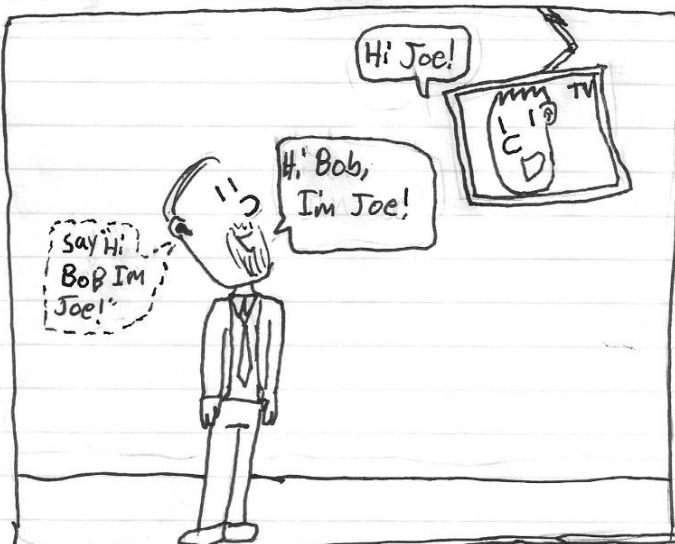 Hi Joe!
TV
Hi Bob,
I'm Joe!
say "Hi
BoB Im
Joe!"